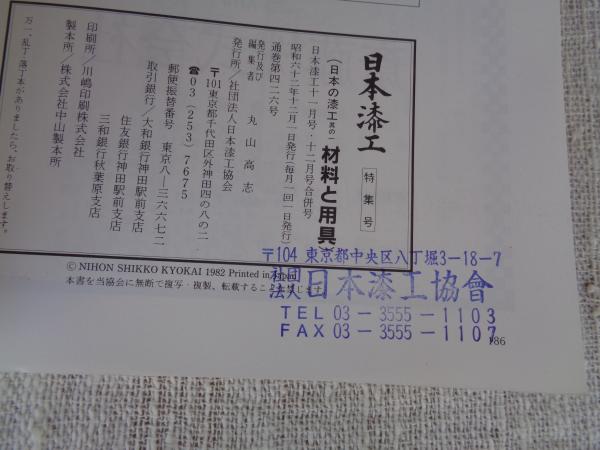 日本漆工 特集号
(日本の漆工其の一)材料と用具
日本漆工十一月号・十二月号合併号
昭和六十二年十二月一日発行(毎月一回一日発行)
通巻第四二六号
発行及び編集者 丸山高志
発行所/社団法人日本漆工協会
〒101東京都千代田区外神田四の八の二
☎03(253)7675
郵便振替番号 東京八―三六六七二
取引銀行/大和銀行神田駅前支店
住友銀行神田駅前支店
三和銀行秋葉原支店
印刷所/川嶋印刷株式会社
製本所/株式会社中山製本所
万一、乱丁・落丁本がありましたら、お取り替えします。
© NIHON SHIKKO KYOKAI 1982 Printed in Japan
本書を当協会に無断で複写・複製、転載することを禁じます
〒104 東京都中央区八丁堀3-18-7
社団法人日本漆工協會
TEL 03-3555-1103
FAX 03-3555-1107
186